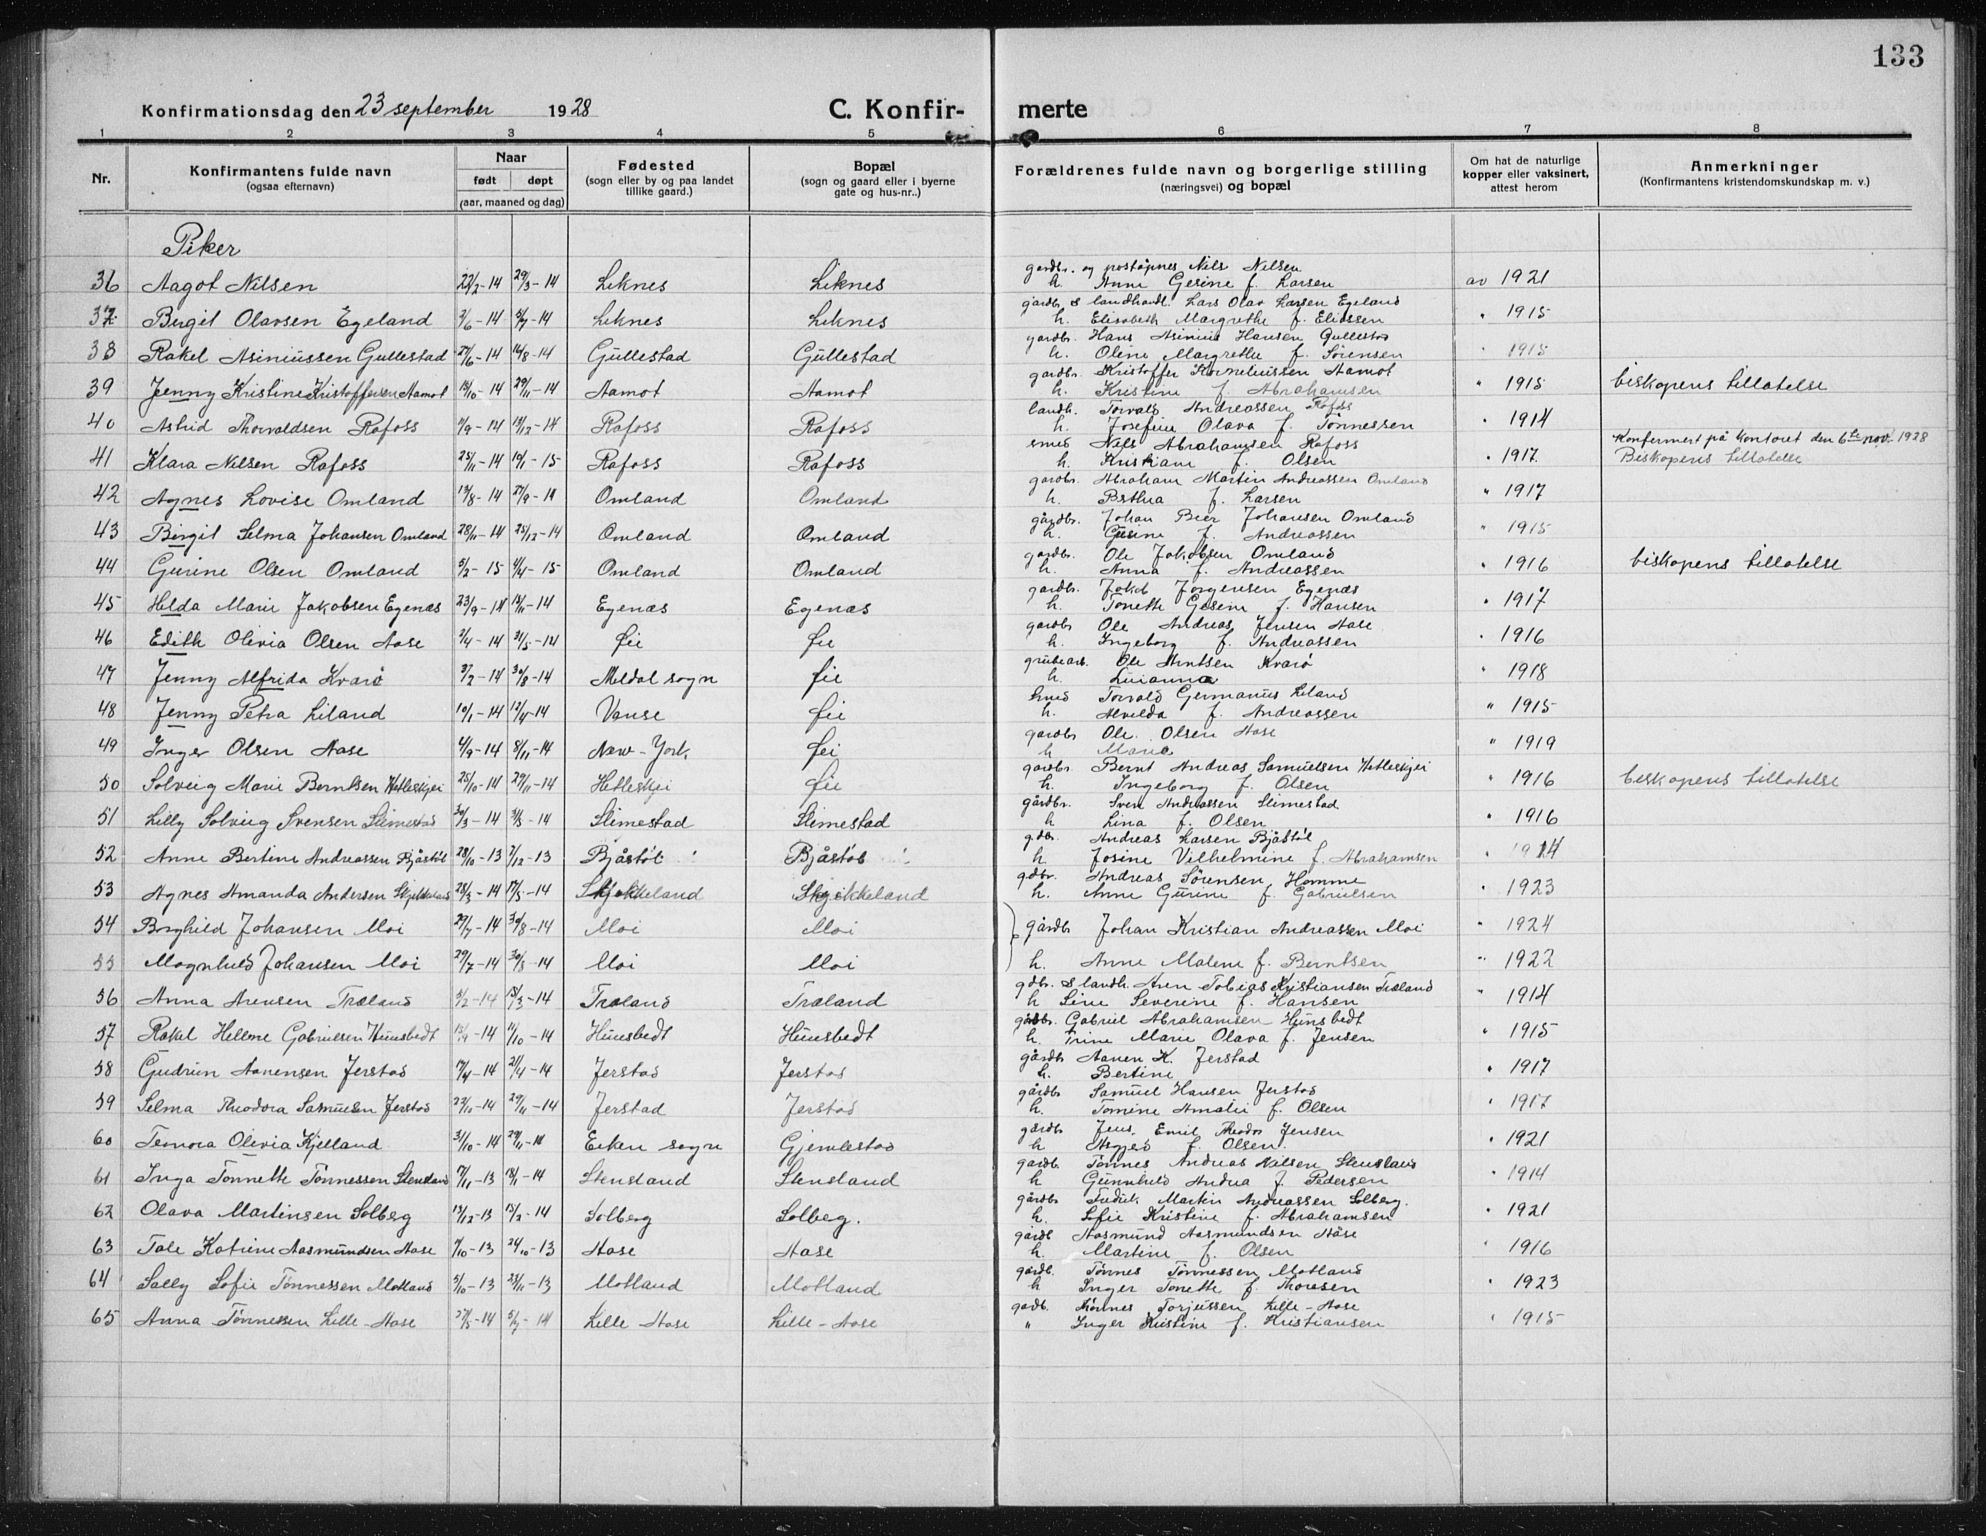 133
Konfirmationsdag den 23 september 1928 C. Konfir- merte
1 2 3 4 5 6 7 8
Nr. Konfirmantens fulde navn (ogsaa efternavn) Naar født døpt (aar, maaned og dag) Fødested (sogn eller by og paa landet tillike gaard.) Bopæl (sogn og gaard eller i byerne gate og hus-nr..) Forældrenes fulde navn og borgerlige stilling (næringsvei) og bopæl Om hat de naturlige kopper eller vaksinert, attest herom Anmerkninger (Konfirmantens kristendomskundskap m. v.)
Piker
36 Aagot Nilsen 22/2-14 29/3-14 Liknes Liknes gardbr. og postøpnes Nils Nilsen av 1921
h. Anne Gesine f. Larsen
37 Birgit Olavsen Egeland 2/6-14 5/7-14 Liknes Liknes gårdbr & landhandl. Lars Olav Larsen Egeland " 1915
h. Elisabeth Margrethe f. Eliassen
38 Rakel Asiniussen Gullestad 27/6-14 16/8-14 Gullestad Gullestad gardbr. Hans Asinius Hansen Gullestad " 1915
h. Oline Margrethe f. Sørensen
39 Jenny Kristine Kristoffersen Aamot 18/10-14 29/11-14 Aamot Aamot gardbr. Kristoffer Korneliussen Aamot " 1915 biskopens tillatelse
h. Kristine f. Abrahamsen
40 Astrid Thorvaldsen Rafoss 9/9-14 13/12-14 Rafoss Rafoss landh. Torvald Andreassen Rafoss " 1914
h. Josefine Olava f. Tønnessen
41 Klara Nilsen Rafoss 25/11-14 10/1-15 Rafoss Rafoss smed Nils Abrahamsen Rafoss " 1917. Konfermert på kontoret den 6te nov. 1928
h. Kristiane f. Olsen Biskopens tillatelse
42 Agnes Lovise Omland 13/8-14 27/9-14 Omland Omland gardbr. Abraham Martin Andreassen Omland " 1917
h. Bertha f. Larsen
43 Birgit Selma Johansen Omland 28/11-14 25/12-14 Omland Omland gårdbr. Johan Beer Johansen Omland " 1915
h. Gusine f. Andreassen
44 Gurine Olsen Omland 5/2-15 4/4-15 Omland Omland gardbr. Ole Jakobsen Omland " 1916 biskopens tillatelse
h. Anna f. Andreassen
45 Hilda Marie Jakobsen Egenæs 23/9-14 15/11-14 Egenæs Egenæs gardbr. Jakob Jørgensen Egenæs " 1917
h. Tonette Gesine f. Hansen
46 Edith Olivia Olsen Aase 2/4-14 31/5-14 Fie Fie gardbr Ole Andreas Jensen Aase " 1916
h. Ingeborg f. Andreassen
47 Jenny Alfrida Kvarø 3/2-14 30/8-14 Meldal sogn Fie grubearb. Ole Arntsen Kvarø " 1918
h. Luianna
48 Jenny Petra Liland 10/1-14 12/4-14 Vanse Fie smed Torvald Germanus Liland " 1915
h. Alvilda f. Andreassen
49 Inger Olsen Aase 4/9-14 8/11-14 New-York. Fei gardbr Ole Olsen Aase " 1919
h Maria
50 Solveig Marie Berntsen Hetleskjei 25/10-14 29/11-14 Hetleskjei Fie gardbr. Bernt Andreas Samuelsen Hetleskjei " 1916 biskopens tillatelse
h. Ingeborg f. Olsen
51 Lilly Solveig Svensen Slimestad 20/3-14 31/5-14 Slimestad Slimestad gårdbr. Sven Andreassen Slimestad " 1916
h. Lina f. Olsen
52 Anne Bertine Andreassen Bjåstøl 28/10-13 7/12-13 Bjåstøl Bjåstøl gdbr. Andreas Larsen Bjåstøl " 1914
h Josine Vilhelmine f. Abrahamsen
53 Agnes Amanda Andersen Skjekkeland 28/3-14 17/5-14 Skjekkeland Skjekkeland gdbr. Andreas Sørensen Homme " 1923
h. Anne Gurine f. Gabrielsen
54 Borghild Johansen Moi 29/7-14 30/8-14 Moi Moi gårdbr Johan Kristian Andreassen Moi " 1924
55 Magnhild Johansen Moi 29/7-14 30/8-14 Moi Moi h. Anne Malene f. Berntsen " 1922
56 Anna Arensen Træland 5/2-14 15/3-14 Træland Træland gdbr. & landh. Aren Tobias Kristiansen Træland " 1914
h Sine Severine f. Hansen
57 Rakel Hellene Gabrielsen Hunsbedt 15/9-14 11/10-14 Hunsbedt Hunsbedt gårdbr. Gabriel Abrahamsen Hunsbedt " 1915
h. Trine Marie Olava f. Jensen
58 Gudrun Aanensen Jerstad 17/4-14 21/4-14 Jerstad Jerstad gårdbr Aanen K. Jerstad " 1917
h. Bertine
59 Selma Theodora Samuelsen Jerstad 23/10-14 29/11-14 Jerstad Jerstad gårdbr. Samuel Hansen Jerstad " 1917
h. Tomine Amalie f. Olsen
60 Teonora Olivia Kjelland 31/10-14 29/11-14 Eiken sogn Gjemlestad gårdbr. Jens Emil Theodor Jensen " 1921
h Asgjerd f. Olsen.
61 Inga Tonnette Tønnessen Stensland 17/11-13 18/1-14 Stensland Stensland gårdb. Tønnes Andreas Nilsen Stensland " 1914
h Gunnhild Andrea f. Pedersen
62 Olava Martinsen Solberg 13/12-13 15/2-14 Solberg Solbeg. gårdbr Fredrik Martin Andreassen Solberg. " 1921
h. Sofie Kristine f. Abrahamsen
63 Tale Katrine Aasmundsen Aase 7/10-13 24/10-13 Aase Aase gårdb Aasmund Aasmundsen Aase " 1916
h. Martine f. Olsen
64 Sally Sofie Tønnessen Motland 5/10-13 23/11-13 Motland Motland gårdb. Tønnes Tønnessen Motland " 1923
h Inger Tonette f. Thoresen
65 Anna Tønnessen Lille-Aase 27/5-14 5/7-14 Lille Aase Lille-Aase gadb. Tønnes Torjussen Lille-Aase " 1915
" Inger Kristine f. Kristiansen